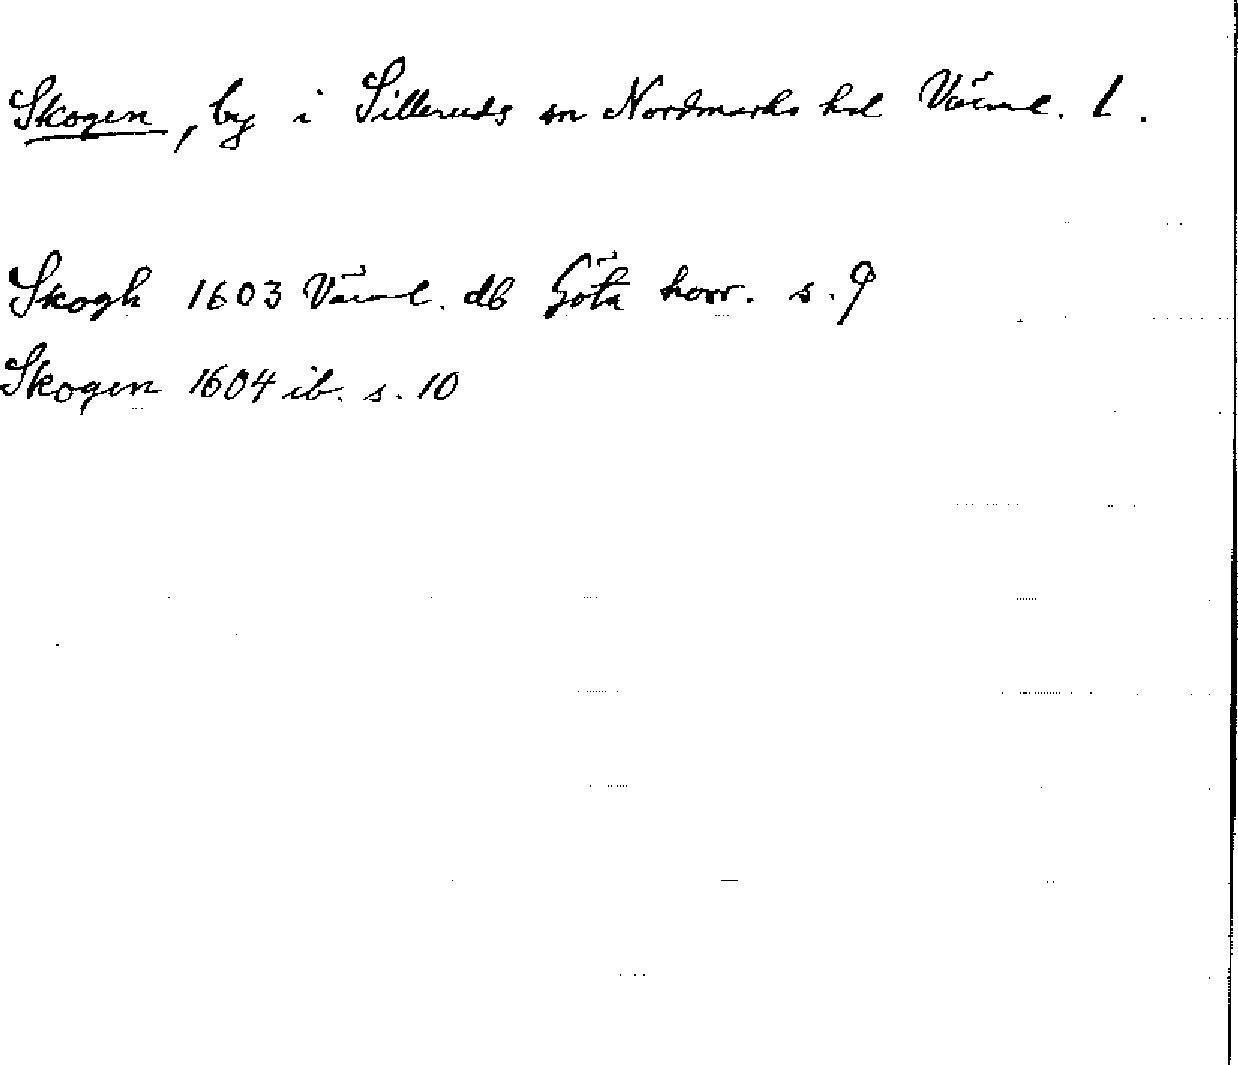 Skogen, by i Silleruds sn Nordmarks hd Värml. l.
Skogh 1603 Värml. db Göta hovr. s. 9
Skogen 1604 ib. s. 10